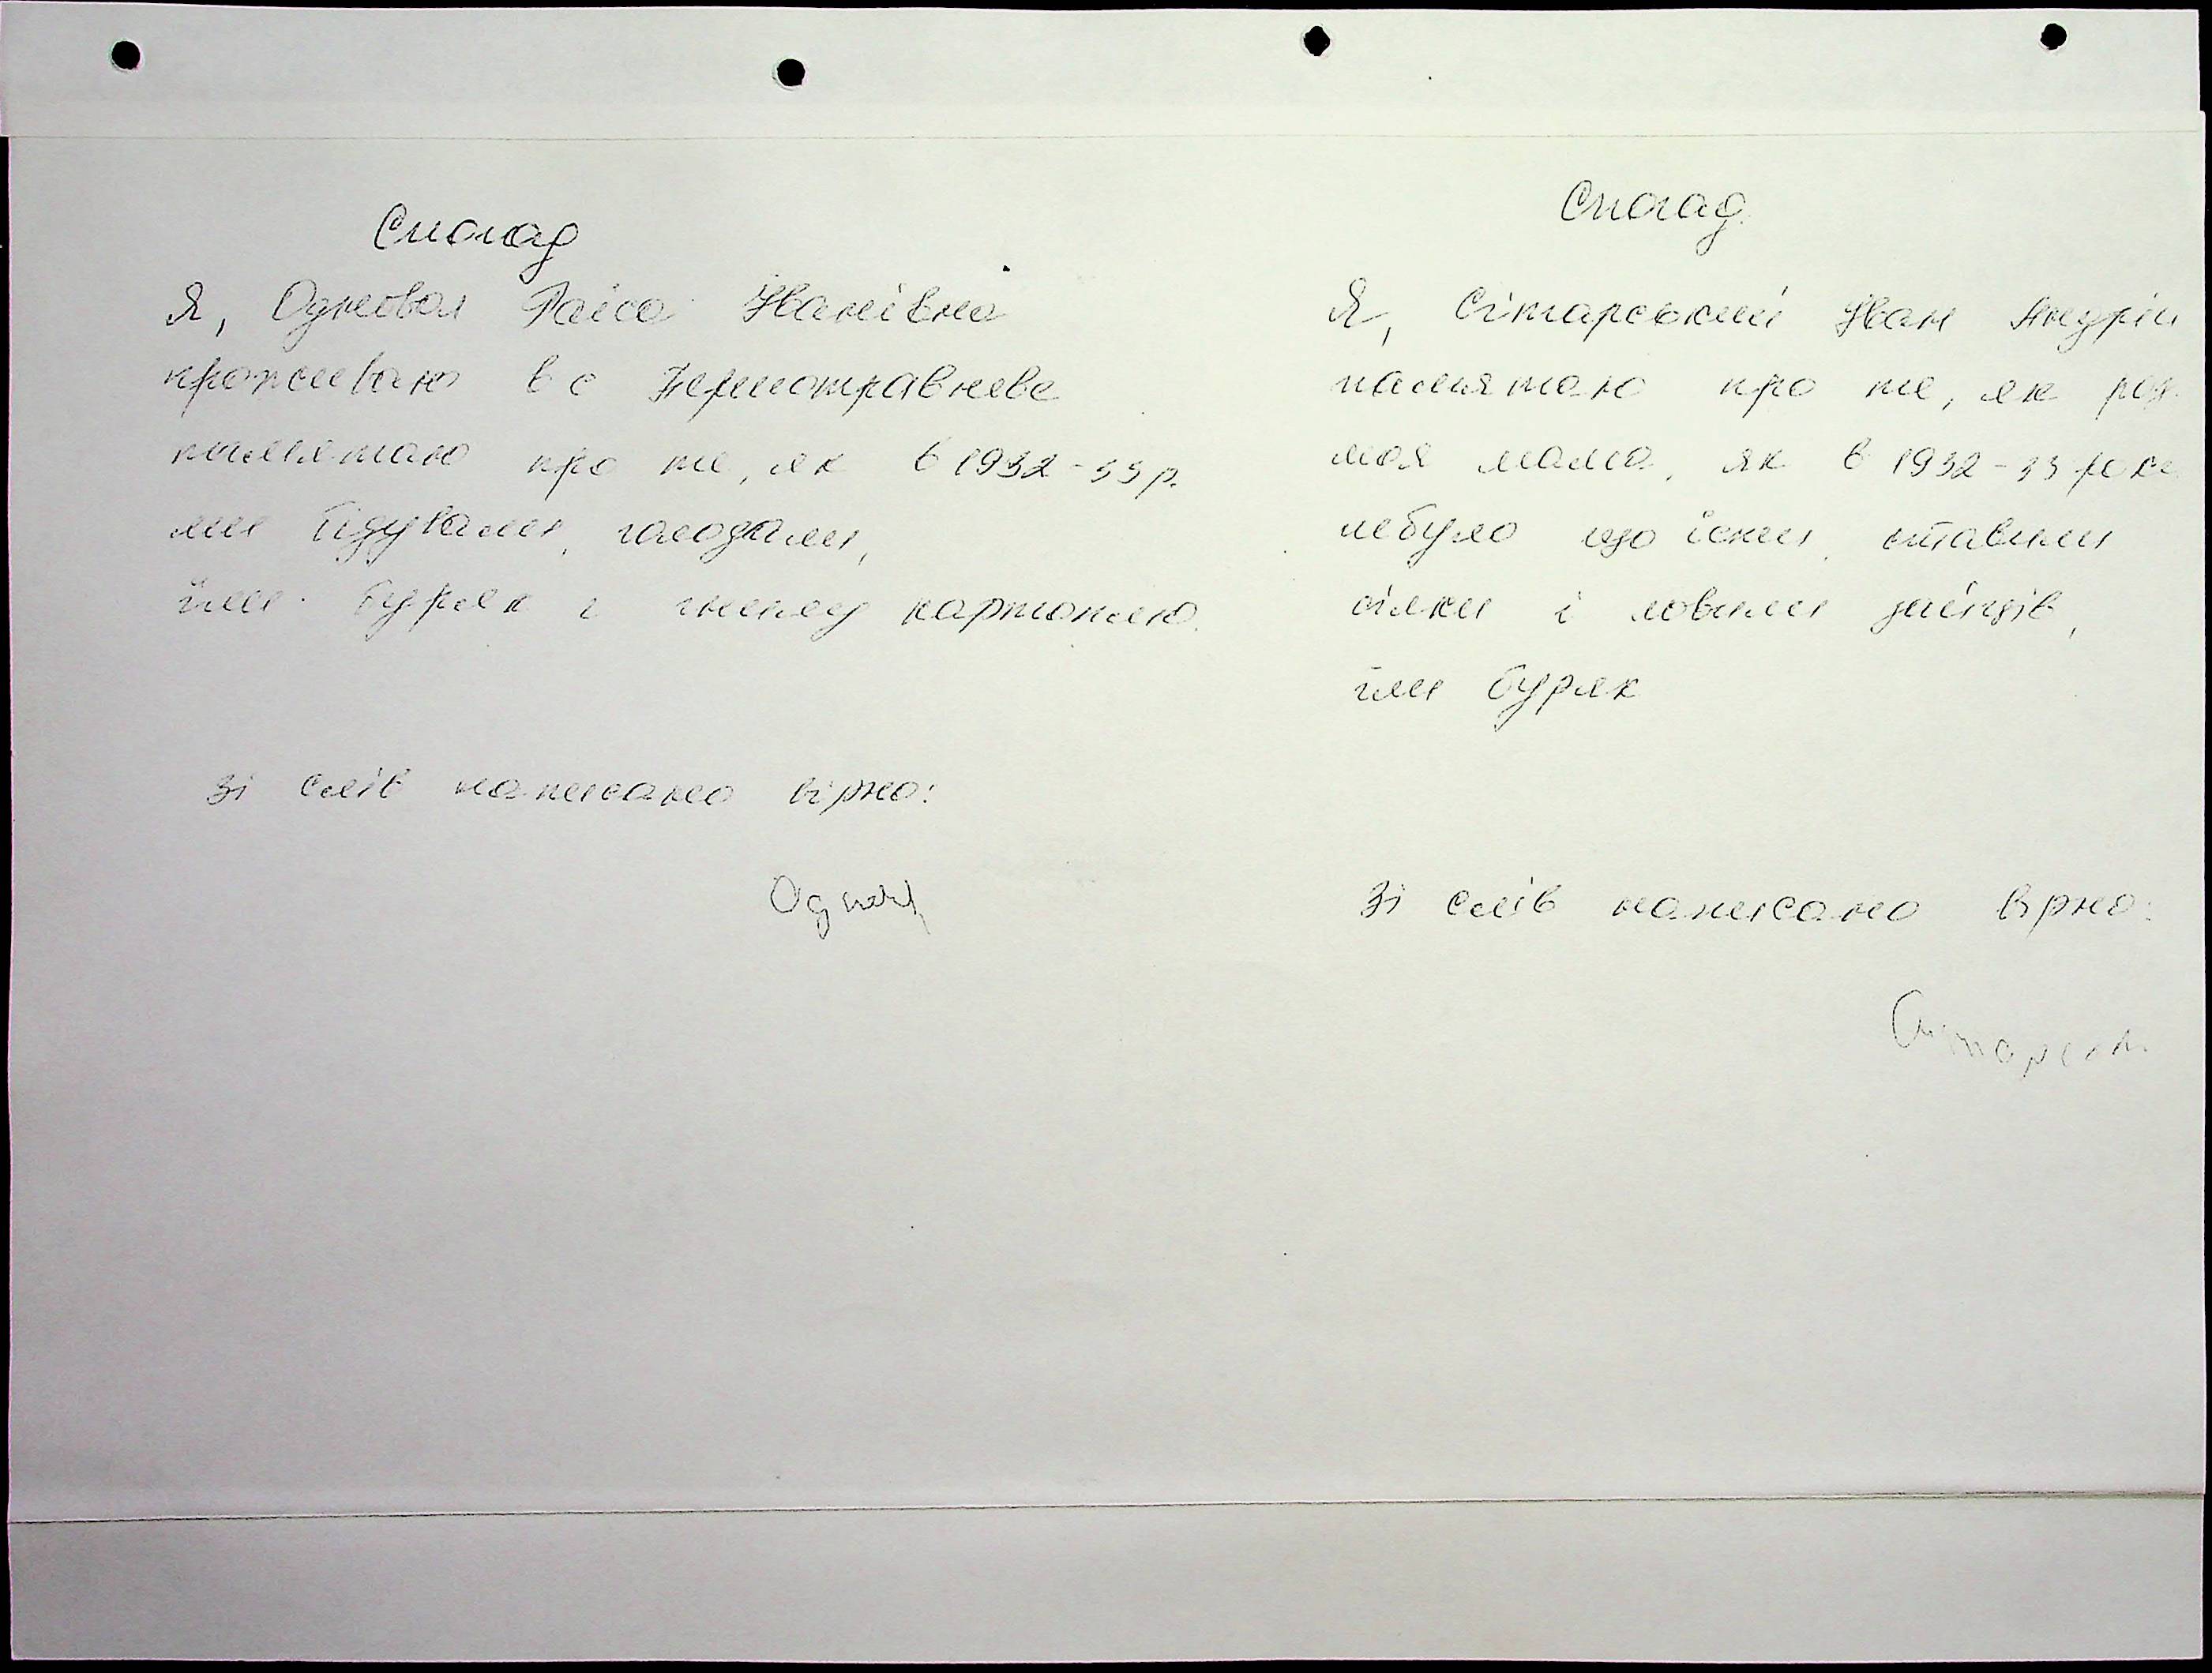 Спогад
Я, Одновол Раїса Іванівна
проживаю в с Першотравневе
памятаю про те, як в 1932-33 р.
ми бідували, голодали,
їли буряк і гнилу картоплю.
Зі слів написано вірно:
Спогад.
Я, Сітарський Іван Андрій
памятаю про те, як роз
моя мама, як в 1932-33 роки
небуло що їсти, ставили
сілки і ловили зайців,
їли буряк
Зі слів написано вірно: